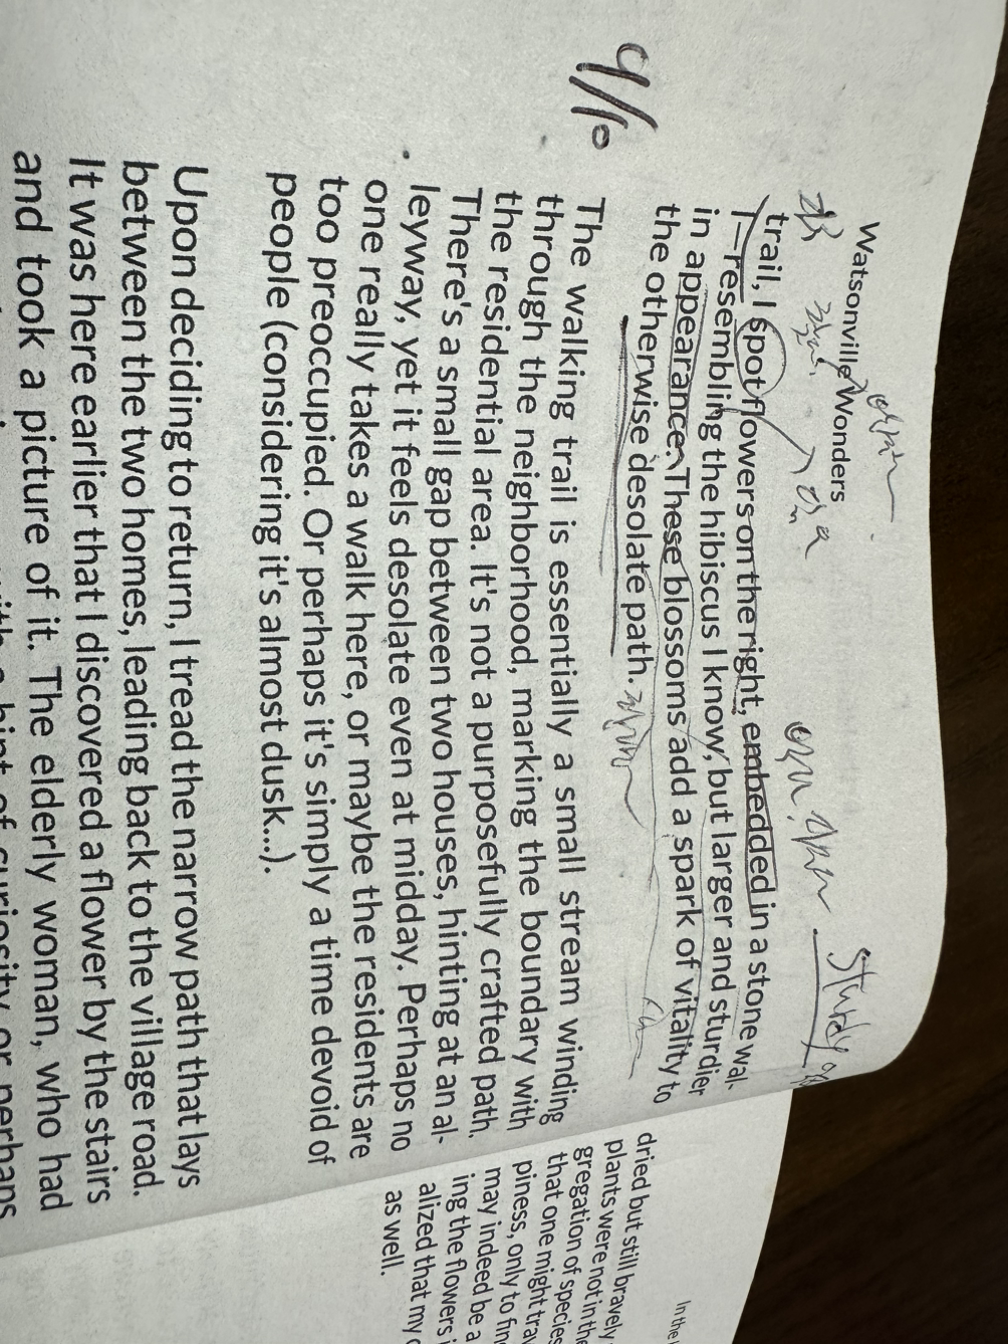 Watsonville Wonders
study
a
trail, I spot flowers on the right, embedded in a stone wal-
l—resembling the hibiscus I know, but larger and sturdier
in appearance. These blossoms add a spark of vitality to
the otherwise desolate path.
The walking trail is essentially a small stream winding
through the neighborhood, marking the boundary with
the residential area. It's not a purposefully crafted path.
There's a small gap between two houses, hinting at an al-
leyway, yet it feels desolate even at midday. Perhaps no
one really takes a walk here, or maybe the residents are
too preoccupied. Or perhaps it's simply a time devoid of
people (considering it's almost dusk...).
Upon deciding to return, I tread the narrow path that lays
between the two homes, leading back to the village road.
It was here earlier that I discovered a flower by the stairs
and took a picture of it. The elderly woman, who had
with a hint of curiosity or perhaps
In the
dried but still bravely
plants were not in the
gregation of species
that one might tra
piness, only to fin
may indeed be a
ing the flowers i
alized that my
as well.